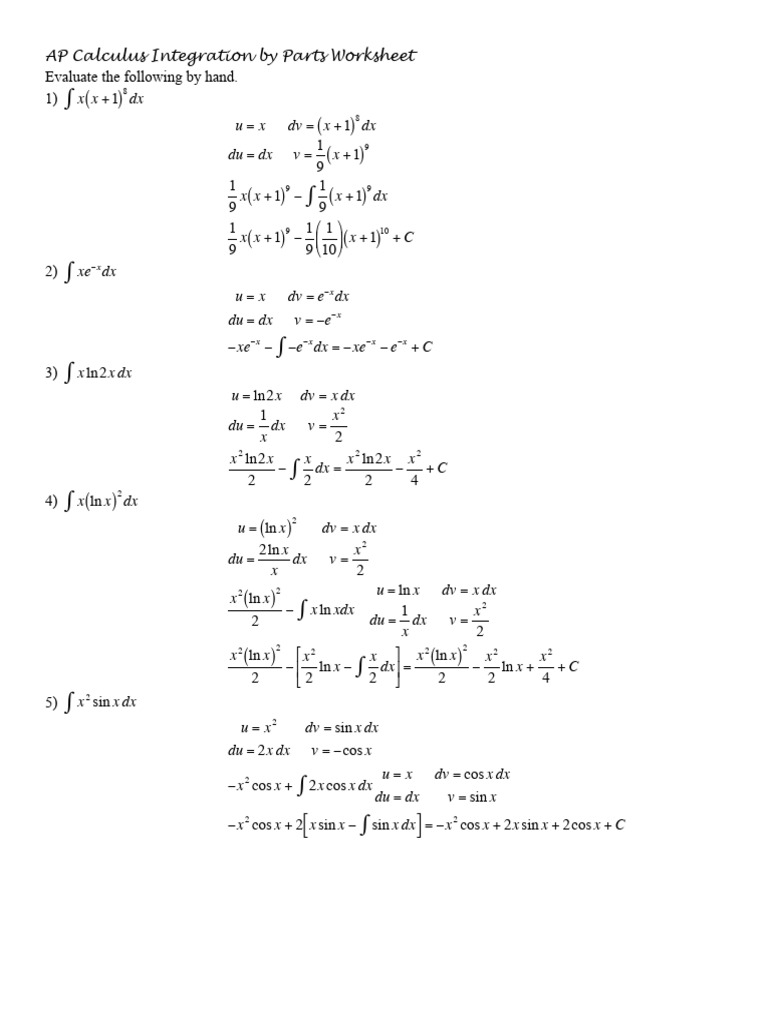 AP Calculus Integration by Parts Worksheet
Evaluate the following by hand.
1) ∫ x(x + 1)⁸ dx
u = x dv = (x + 1)⁸ dx
du = dx v = 1/9 (x + 1)⁹
1/9 x(x + 1)⁹ − ∫ 1/9 (x + 1)⁹ dx
1/9 x(x + 1)⁹ − 1/9 (1/10)(x + 1)¹⁰ + C
2) ∫ xe⁻ˣdx
u = x dv = e⁻ˣdx
du = dx v = −e⁻ˣ
−xe⁻ˣ − ∫ −e⁻ˣdx = −xe⁻ˣ − e⁻ˣ + C
3) ∫ x ln2x dx
u = ln2x dv = x dx
du = 1/x dx v = x²/2
x² ln2x/2 − ∫ x/2 dx = x² ln2x/2 − x²/4 + C
4) ∫ x(ln x)² dx
u = (ln x)² dv = x dx
du = 2ln x/x dx v = x²/2
x²(ln x)²/2 − ∫ x ln xdx u = ln x dv = x dx
du = 1/x dx v = x²/2
x²(ln x)²/2 − [x²/2 ln x − ∫ x/2 dx] = x²(ln x)²/2 − x²/2 ln x + x²/4 + C
5) ∫ x² sin x dx
u = x² dv = sin x dx
du = 2x dx v = −cos x
−x² cos x + ∫ 2x cos x dx u = x dv = cos x dx
du = dx v = sin x
−x² cos x + 2[x sin x − ∫ sin x dx] = −x² cos x + 2x sin x + 2cos x + C